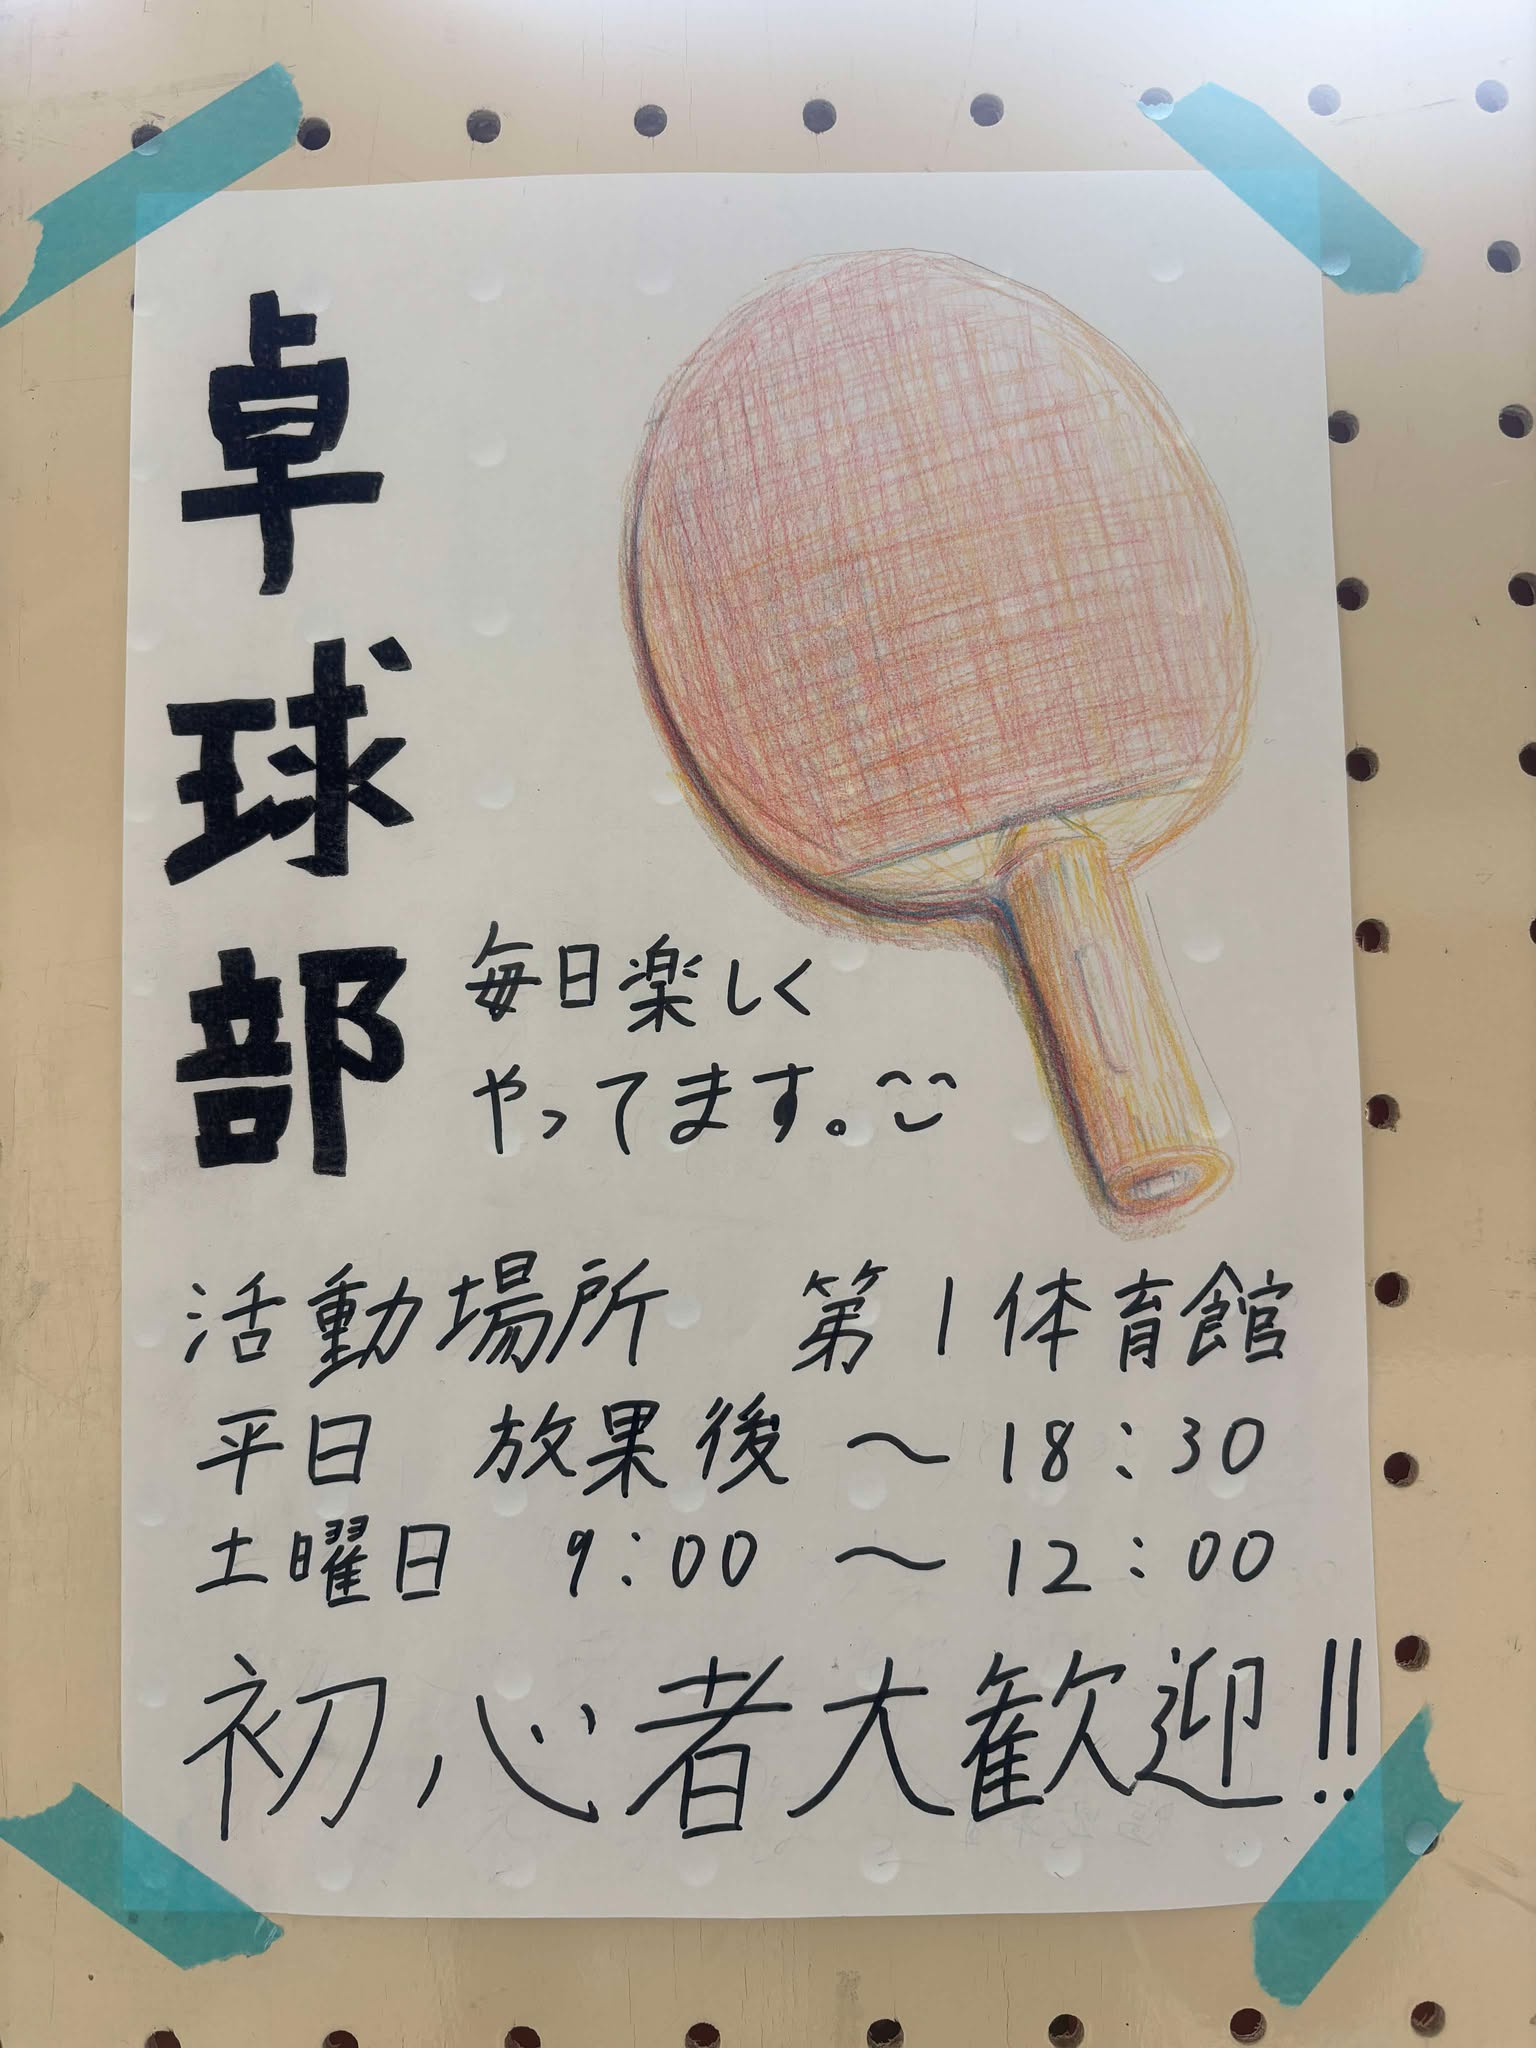 卓球部
毎日楽しく
やってます。
活動場所 第1体育館
平日 放果後 〜 18:30
土曜日 9:00 〜 12:00
初心者大歓迎!!